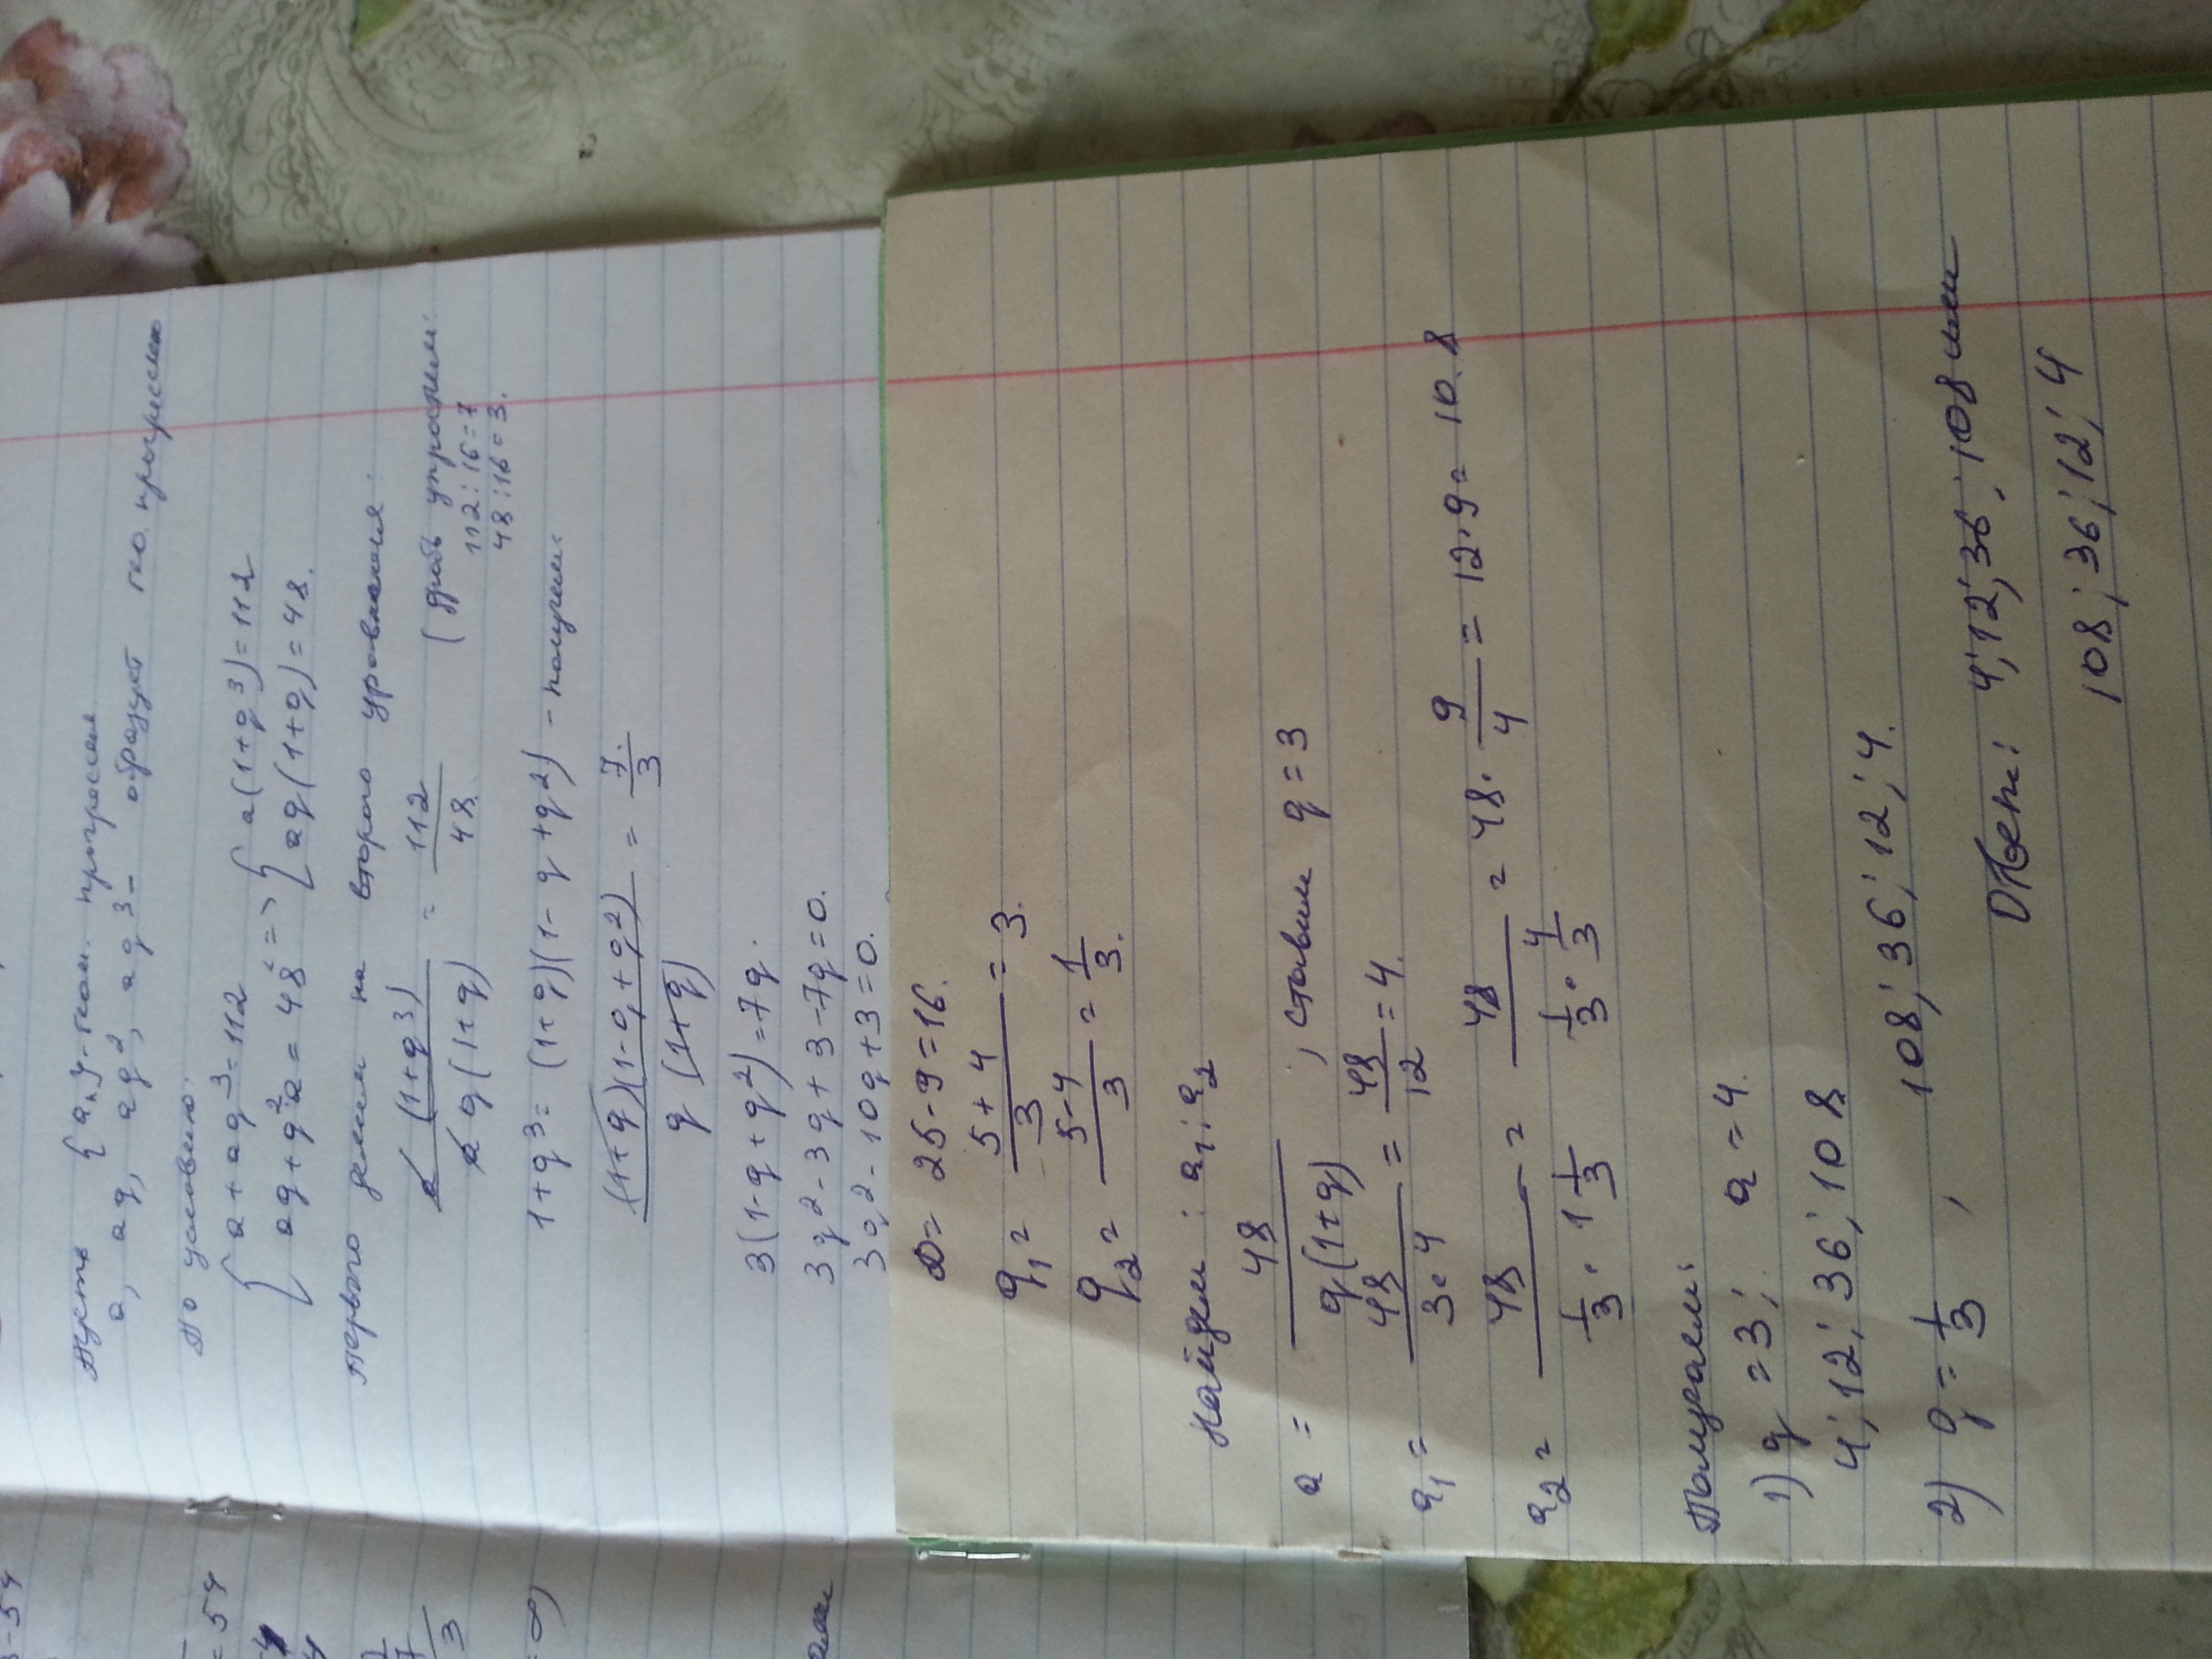 Пусть {aₙ} - геом. прогрессия
a, aq, aq², aq³ - образует гео. прогрессию
По условию:
{ a + aq³ = 112
aq + q²a = 48 => { a(1+q³) = 112
aq(1+q) = 48.
Первого делим на второго уровнения:
a(1+q³) / aq(1+q) = 112/48 (дробь упростим:
112:16=7
48:16=3.
1+q³ = (1+q)(1-q+q²) - получем:
(1+q)(1-q+q²) / q(1+q) = 7/3.
3(1-q+q²) = 7q.
3q² - 3q + 3 - 7q = 0.
3q² - 10q + 3 = 0.
D = 25-9 = 16.
q₁ = (5+4)/3 = 3.
q₂ = (5-4)/3 = 1/3.
Найдем: a₁ и a₂
a = 48 / q(1+q) , ставим q = 3
a₁ = 48/3·4 = 48/12 = 4.
a₂ = 48 / (1/3 · 1 1/3) = 48 / (1/3 · 4/3) = 48 · 9/4 = 12·9 = 108
Получаем:
1) q = 3; a = 4.
4; 12; 36; 108
2) q = 1/3 , 108; 36; 12; 4.
Ответ: 4; 12; 36; 108 или
108; 36; 12; 4
-54
= 54
3
= ∞)